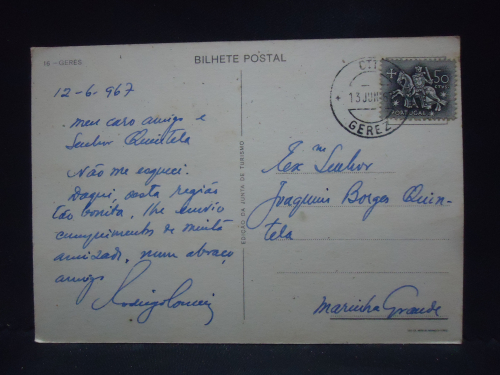 16 - GEREZ
BILHETE POSTAL
CTT
13 JUN
GEREZ
50
CTVS
PORTUGAL
12-6-967
meu caro amigo e
Senhor Quintela
Não me esqueci.
Daqui, desta região
tão bonita, lhe envio
cumprimentos de muita
amizade, num abraço
amigo
EDIÇÃO DA JUNTA DE TURISMO
Ex.mo Senhor
Joaquim Borges Quin-
tela
Marinha Grande